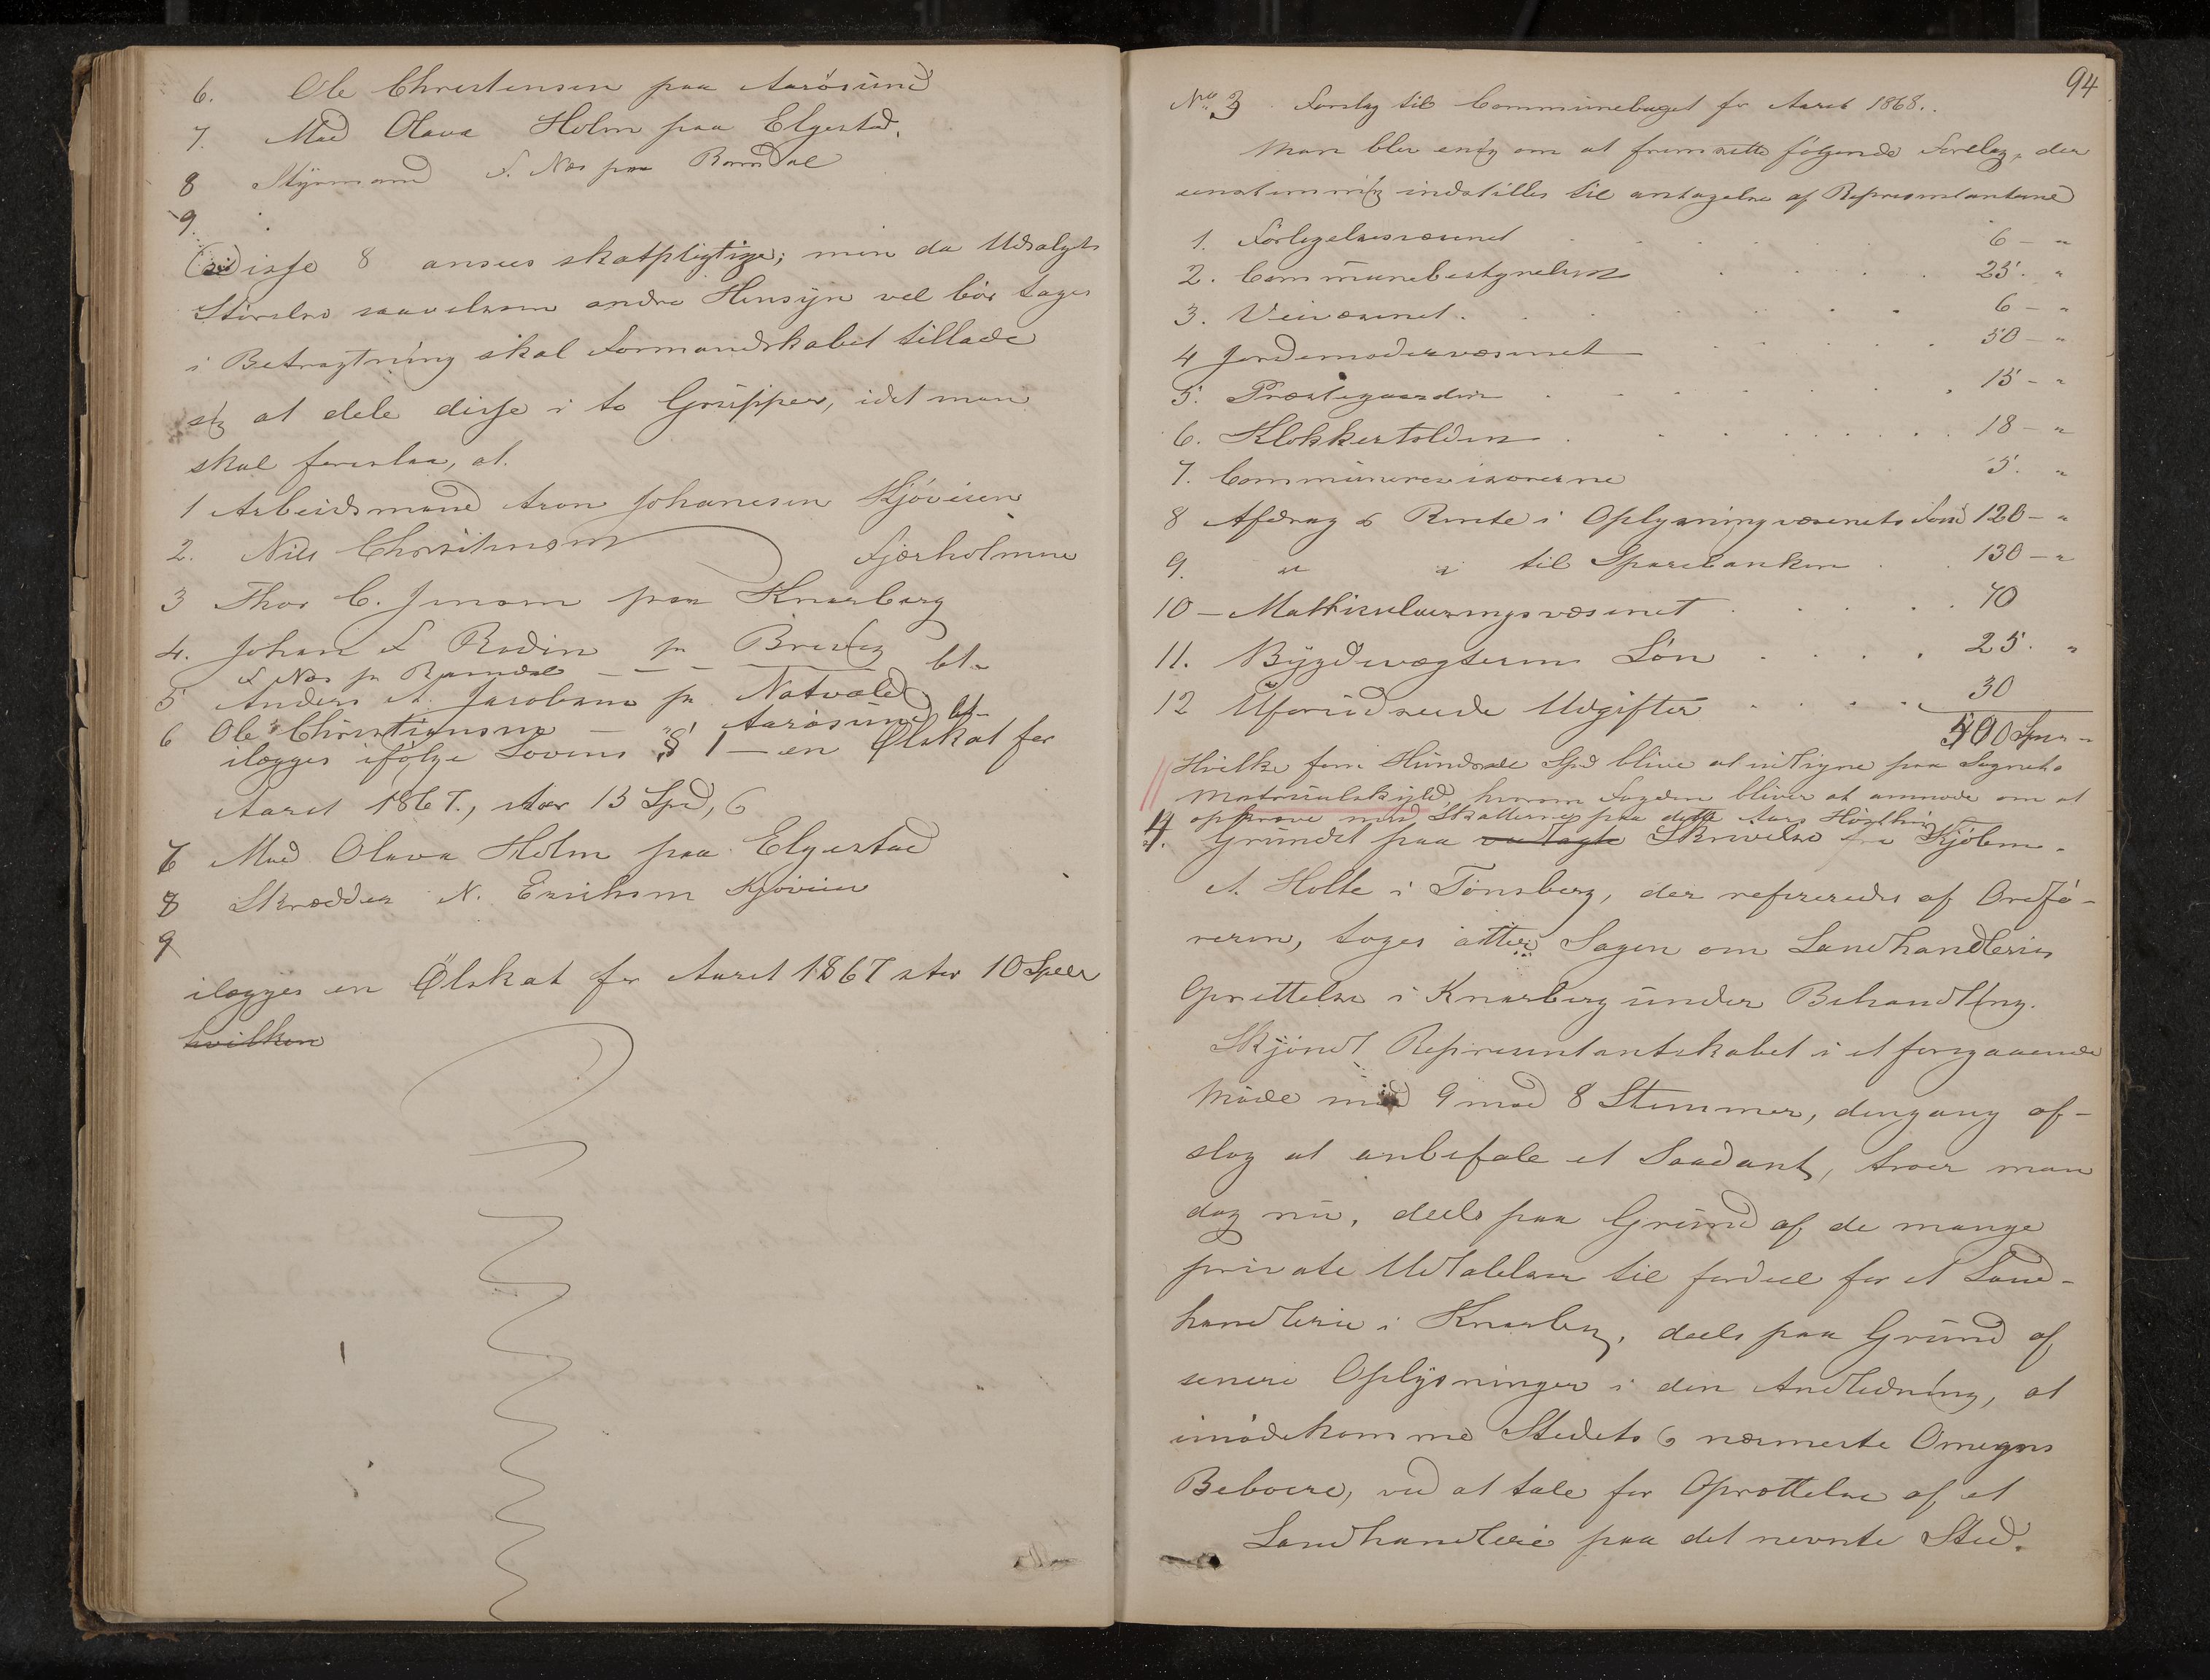 6. Ole Christensen paa Aarösund
7. Mad Olava Holm paa Elgestad.
8 Styrmand F. Næs paa Ramdal
9.
Disse 8 ansees skatpligtige; men da Udsalgets
Störelse saavelsom andre Hensyn vel bör tages
i Betragtning skal Formandskabet tillade
sig at dele disse i to Grupper, idet man
skal foreslaa, at.
1 Arbeidsmand Aron Johanesen Kjöveien
2. Nils Christensen Fjærholmene
3 Thor C. Jensen paa Knarberg
4. Johan F Rodin pa Brevig
F Næs pa Ramdal — — — bt.
5 Anders A. Jacobsen pa Natvald
6 Ole Christiansen — " — Aarösund bt-
ilægges ifölge Lovens § 1 — en Ölskat for
Aaret 1867., stor 15 Spd,
7 Mad Olava Holm paa Elgestad
8 Skrædder N. Eriksen Kjöveien
9
ilægges en Ölskat for Aaret 1867 stor 10 Spdlr
hvilken
94
No 3 Forslag til Communebuget for Aaret 1868..
Man blev enig om at fremsætte fölgende Forslag, der
eenstemmig indstilles til antagelse af Repræsentanterne
1. Forligelsesvæsenet . . . 6 - "
2. Communebestyrelsen . . . 25. "
3. Veivæsenet . . . 6 - "
4 Jordemodervæsenet . . . 50 - "
5. Præstegaarden . . . 15 - "
6. Klokkertolden . . . 18 - "
7. Communerevisorerne 5. "
8 Afdrag & Rente i Oplysningvæsenets Fond 120 - "
9. " " til Sparebanken . . 130 - "
10 - Matriculeringsvæsenet . . . 70
11. Bygdevægterens Lön . . . 25. "
12 Uforudseede Udgifter . . . 30
500 Spd -
Hvilke fem Hundrede Spd blive at utligne paa Sognets
Matriculskyld, hvorom Fogden bliver at anmode om at
opkræve med Skatterne paa dette Aars Hösthing
4. Grundet paa vedlagte Skrivelse fra Kjöbm.
A. Holte i Tönsberg, der refereredes af Ordfö-
reren, toges atter Sagen om Landhandleries
Oprettelse i Knarberg under Behandling.
Skjöndt Repræsentantskabet i et foregaaende
Möde med 9 mod 8 Stemmer, dengang af-
slog at anbefale et Saadant, troer man
dog nu, deels paa Grund af de mange
private Udtalelser til fordeel for et Land-
handlerie i Knarberg, deels paa Grund af
senere Oplysninger i den Andledning, at
imödekomme Stedets & nærmeste Omegns
Beboere, ved at tale for Oprettelse af et
Landhandlerie paa det nevnte Sted.